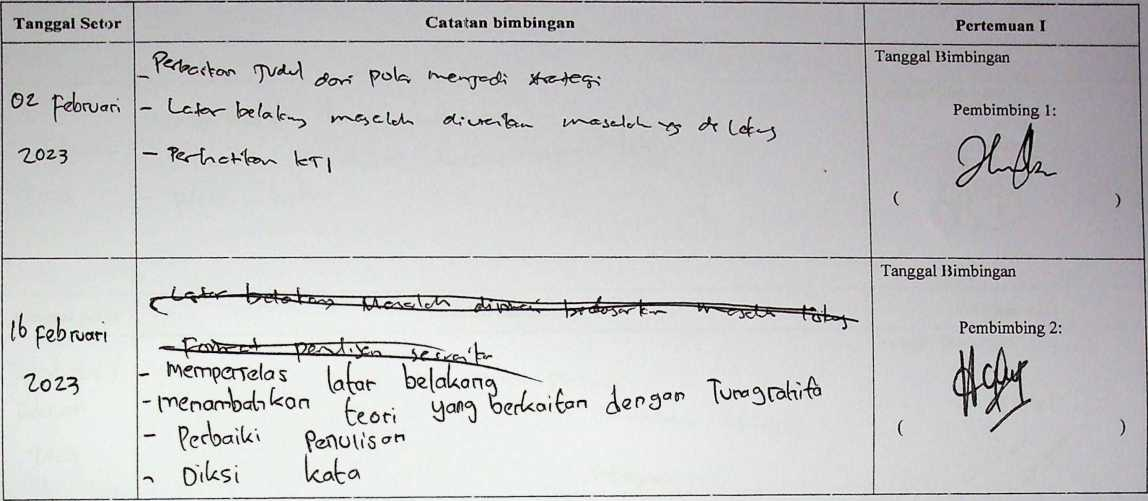 Tanggal Setor
Catatan bimbingan
Pertemuan I
02 Februari
2023
- Perbaikan Judul dari pola menjadi strategi
- Latar belakang masalah diuraikan masalah yg di
- Perhatikan KTI
Tanggal Bimbingan
Pembimbing 1:
( )
16 Februari
2023
Latar belakang Masalah berdasarkan masalah
- Format penulisan sesuaikan
- memperjelas latar belakang
- menambahkan teori yang berkaitan dengan Tunagrahita
- Perbaiki Penulisan
- Diksi kata
Tanggal Bimbingan
Pembimbing 2:
( )